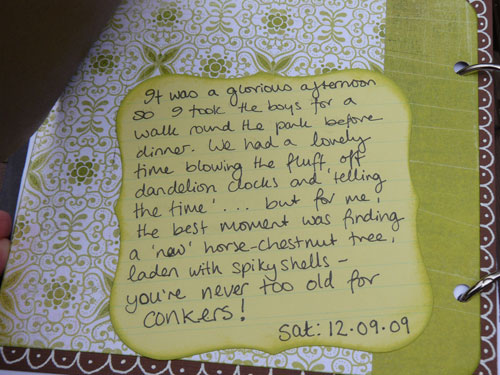 It was a glorious afternoon
so I took the boys for a
walk round the park before
dinner. We had a lovely
time blowing the fluff off
dandelion clocks and 'telling
the time' ... but for me,
the best moment was finding
a 'new' horse-chestnut tree,
laden with spiky shells -
you're never too old for
conkers!
Sat: 12.09.09